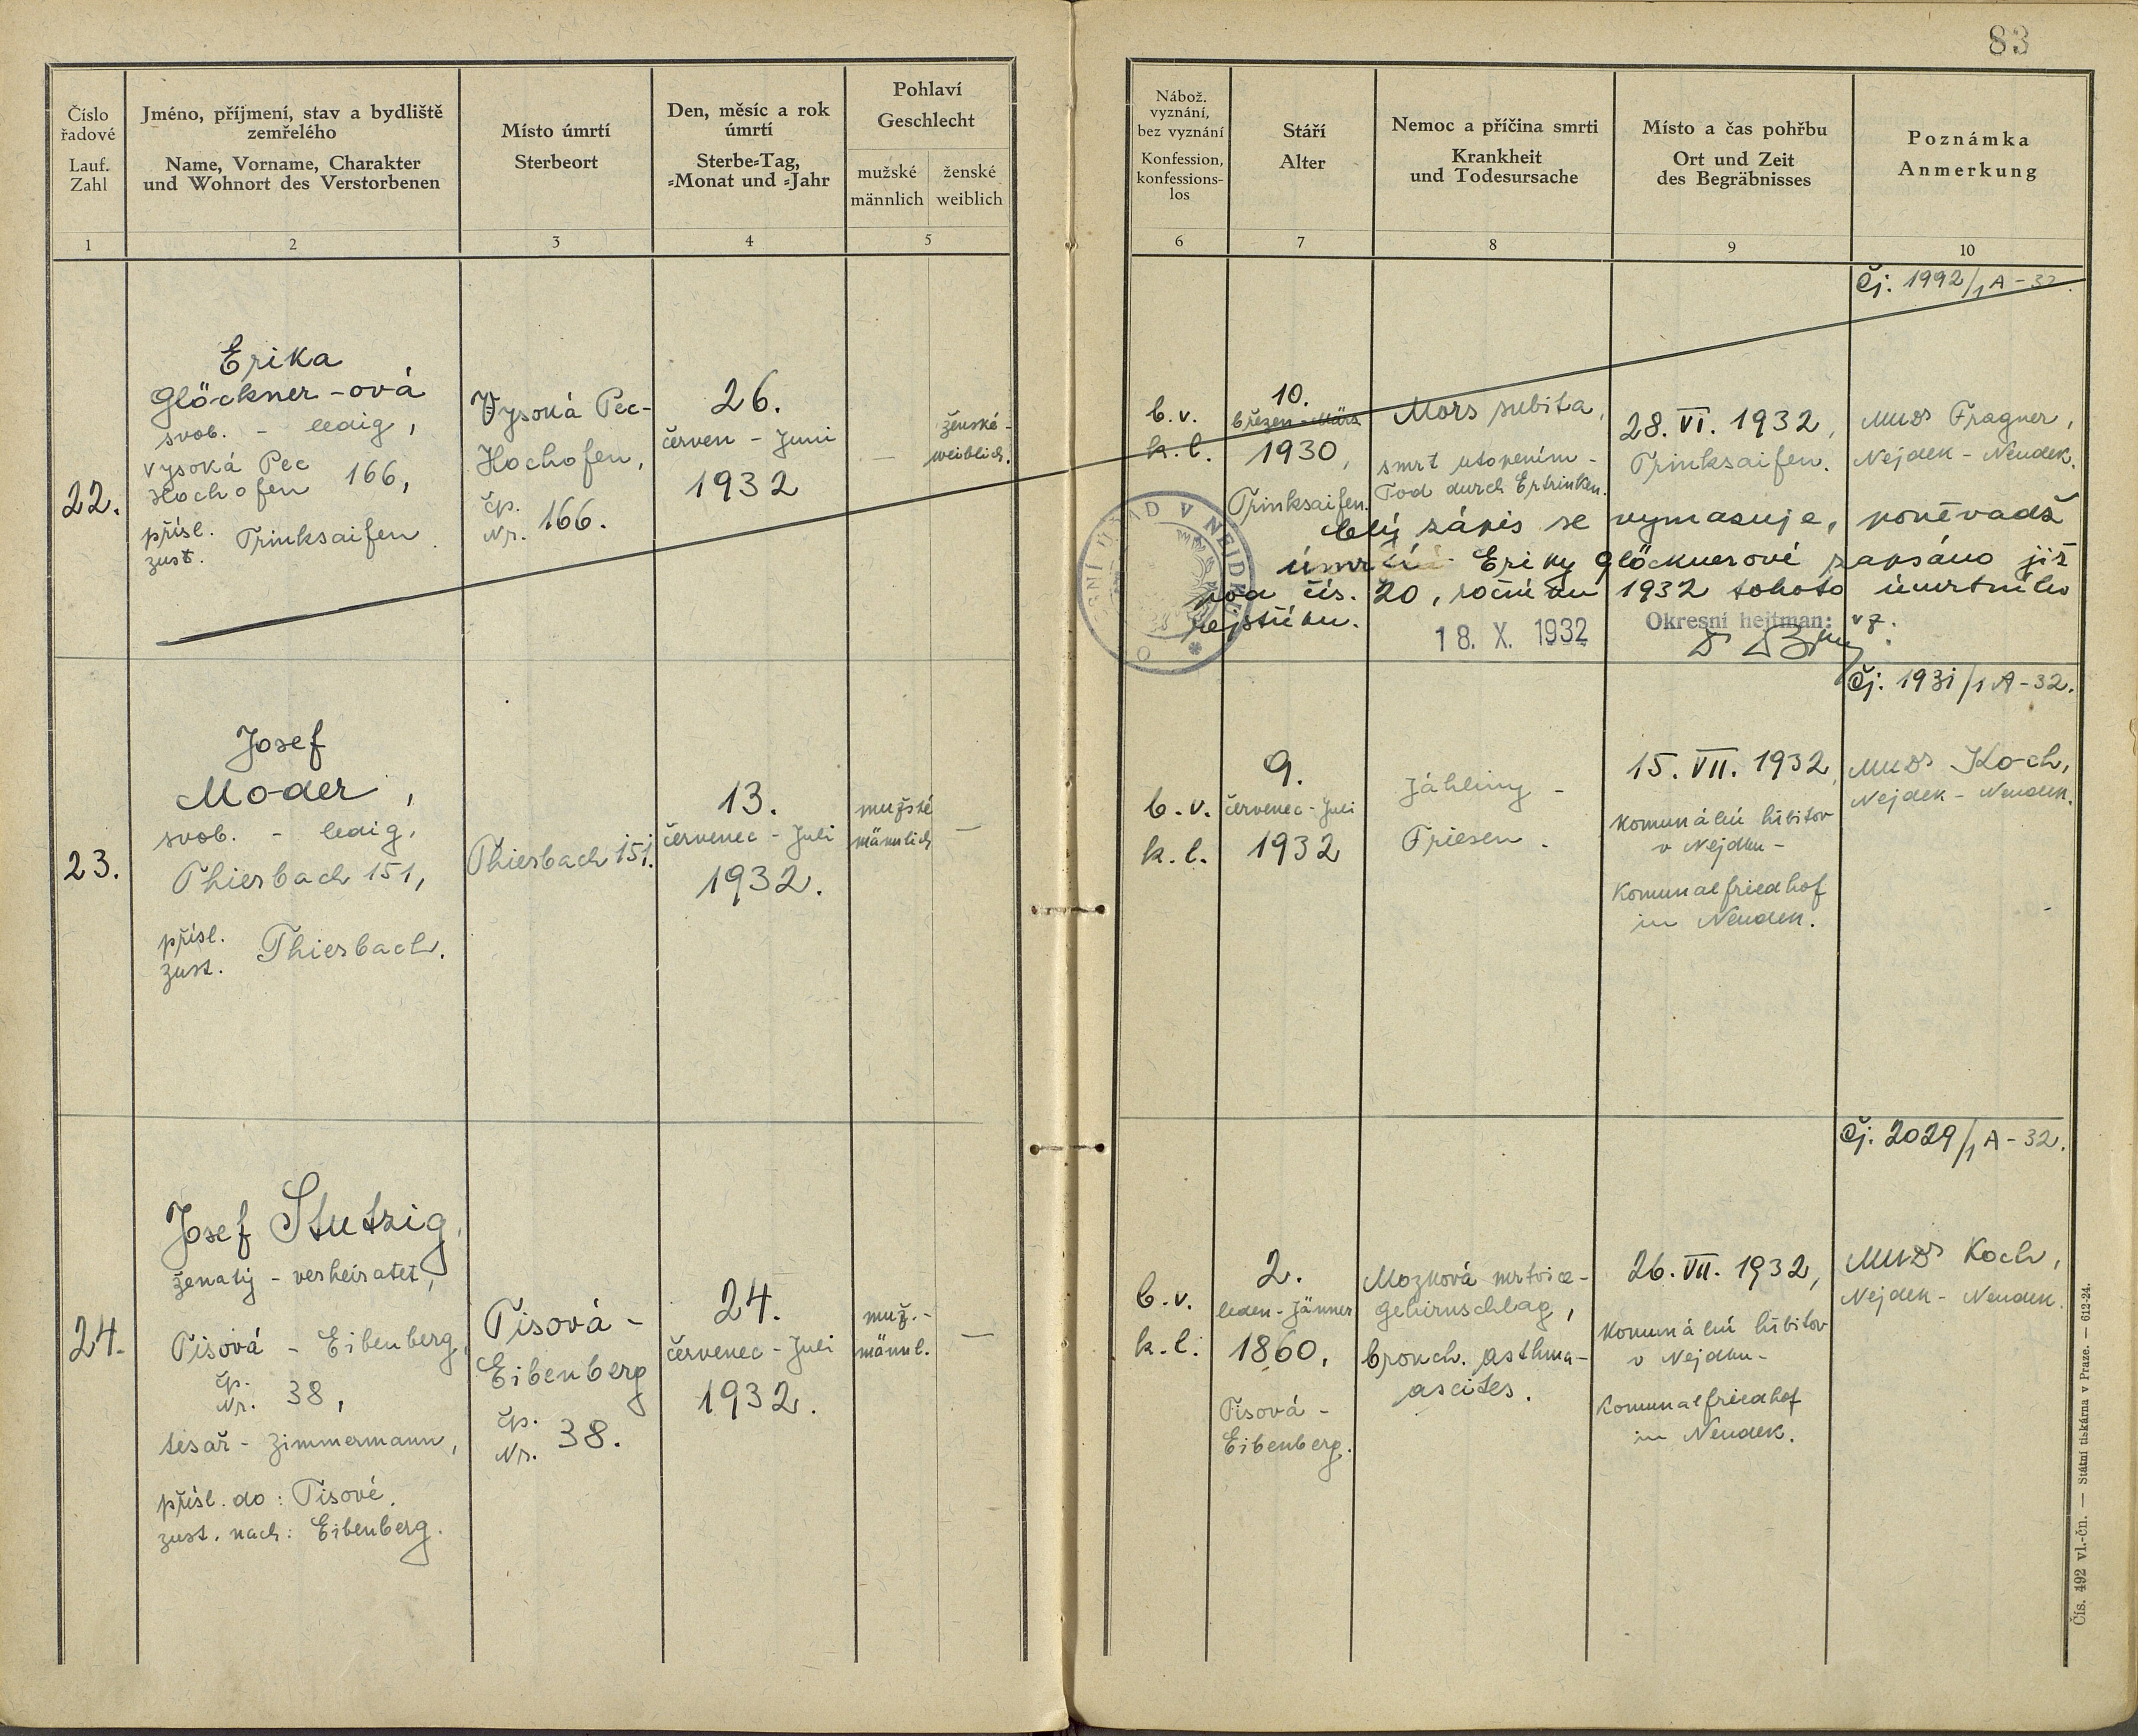 83
Číslo
řadové
Lauf.
Zahl
1
Jméno, příjmení, stav a bydliště
zemřelého
Name, Vorname, Charakter
und Wohnort des Verstorbenen
2
Místo úmrtí
Sterbeort
3
Den, měsíc a rok
úmrtí
Sterbe-Tag,
-Monat und -Jahr
4
Pohlaví
Geschlecht
mužské
männlich
ženské
weiblich
5
Nábož.
vyznání,
bez vyznání
Konfession,
konfessions-
los
6
Stáří
Alter
7
Nemoc a příčina smrti
Krankheit
und Todesursache
8
Místo a čas pohřbu
Ort und Zeit
des Begräbnisses
9
Poznámka
Anmerkung
10
22.
Erika
Glöckner-ová
svob. - ledig,
Vysoká Pec
Hochofen 166,
přísl.
zust. Trinksaifen.
Vysoká Pec-
Hochofen,
čp.
Nr. 166.
26.
červen - Juni
1932
—
ženské -
weiblich.
b.v.
k.l.
10.
březen - März
1930,
Trinksaifen.
Mors subita,
smrt utopením -
Tod durch Ertrinken.
28. VI. 1932,
Trinksaifen.
Čj. 1992/1 A - 32.
MUDr Fragner,
Nejdek - Neudek.
Celý zápis se vymazuje, poněvadž
úmrtí Eriky Glöcknerové zapsáno již
pod čís. 20, ročníku 1932 tohoto úmrtního
rejstříku.
18. X. 1932
Okresní hejtman: v z.
23.
Josef
Moder,
svob. - ledig,
Thierbach 151,
přísl.
zust. Thierbach.
Thierbach 151.
13.
červenec - Juli
1932.
mužské
männlich
—
b.v.
k.l.
9.
červenec - Juli
1932
Jáhliny -
Friesen.
15. VII. 1932,
Komunální hřbitov
v Nejdku -
Komunalfriedhof
in Neudek.
Čj. 1931/1 A - 32.
MUDr Koch,
Nejdek - Neudek.
24.
Josef Stutzig,
ženatý - verheiratet,
Tisová - Eibenberg,
čp.
Nr. 38,
tesař - Zimmermann,
přísl. do: Tisové,
zust. nach: Eibenberg.
Tisová -
Eibenberg
čp.
Nr. 38.
24.
červenec - Juli
1932.
muž. -
männl.
—
b.v.
k.l.
2.
leden - Jänner
1860,
Tisová -
Eibenberg.
Mozková mrtvice -
Gehirnschlag,
bronch. asthma -
ascites.
26. VII. 1932,
Komunální hřbitov
v Nejdku -
Komunalfriedhof
in Neudek.
Čj. 2029/1 A - 32.
MUDr Koch,
Nejdek - Neudek.
Čís. 492 vl.-čn. — Státní tiskárna v Praze. — 612-24.